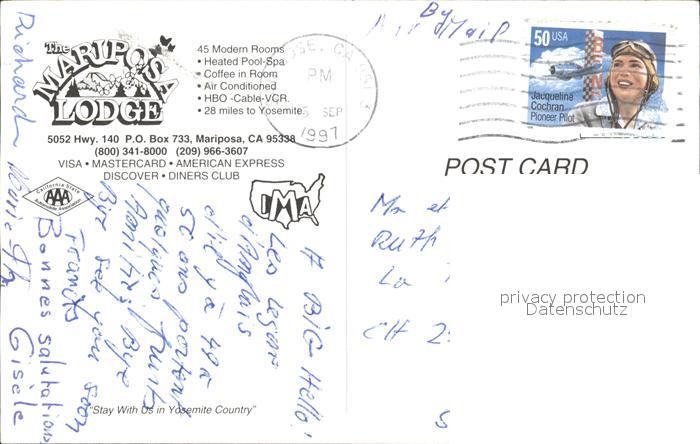 The
MARIPOSA
LODGE
45 Modern Rooms
• Heated Pool-Spa
• Coffee in Room
• Air Conditioned
• HBO -Cable-VCR.
• 28 miles to Yosemite
5052 Hwy. 140 P.O. Box 733, Mariposa, CA 95338
(800) 341-8000 (209) 966-3607
VISA • MASTERCARD • AMERICAN EXPRESS
DISCOVER • DINERS CLUB
California State
AAA
Automobile Association
IMA
"Stay With Us in Yosemite Country"
CA
PM
SEP
1997
By
Air Mail
50 USA
Jacqueline
Cochran
Pioneer Pilot
POST CARD
A BiG Hello!
Les leçons
d'anglais
il y a 40 a
si ons portent
quelques fruits
Bye
Bye see you soon
Francis
Bonnes salutations
Gisèle
Richard
Mr et
Ruth
La
CH 2
S
privacy protection
Datenschutz